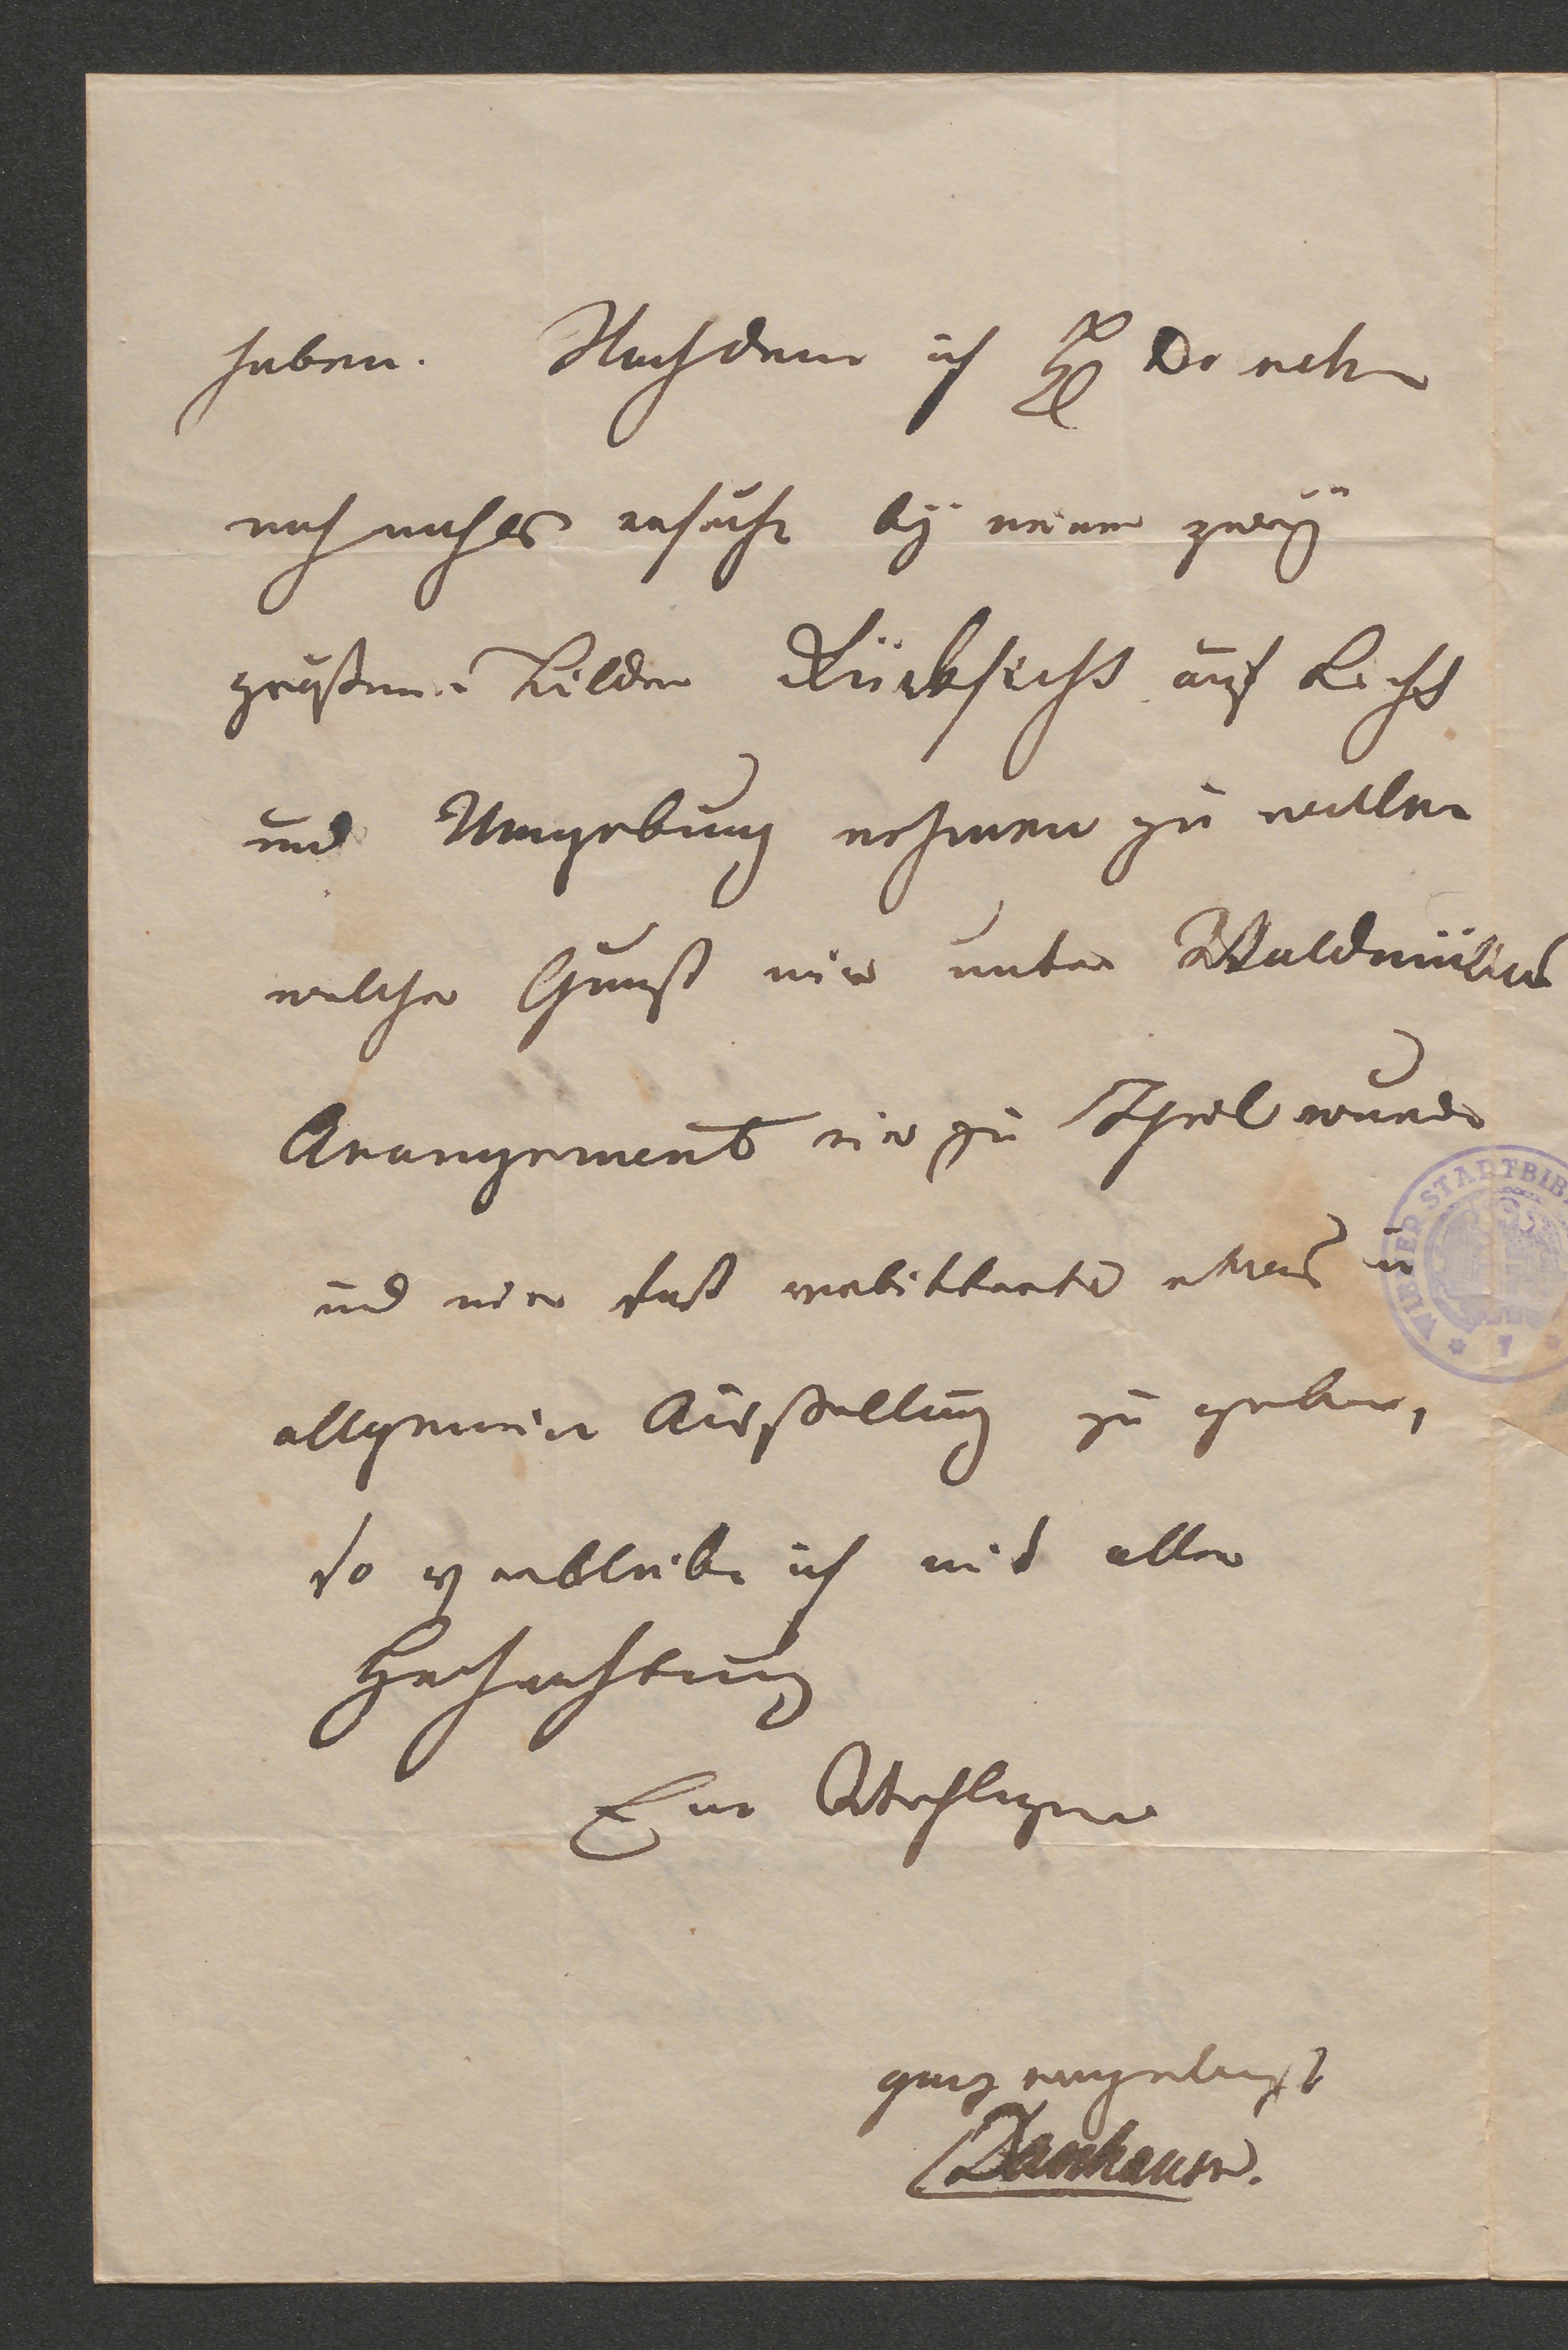 haben. Nachdem ich H
noch ersuche bey meinen zwey
größeren Bilder Rücksicht auf Licht
und Umgebung nehmen zu wollen
welche Gunst mir unter Waldmüllers
Arangement nie zu Theil wurde
und mir daß verbittert etwas in
allgemeiner Ausstellung zu geben,
so verbleibe ich mit aller
Hochachtung
Euer Wohlgebor
ganz ergebenst
Danhauser.
WIENER STADTBIB